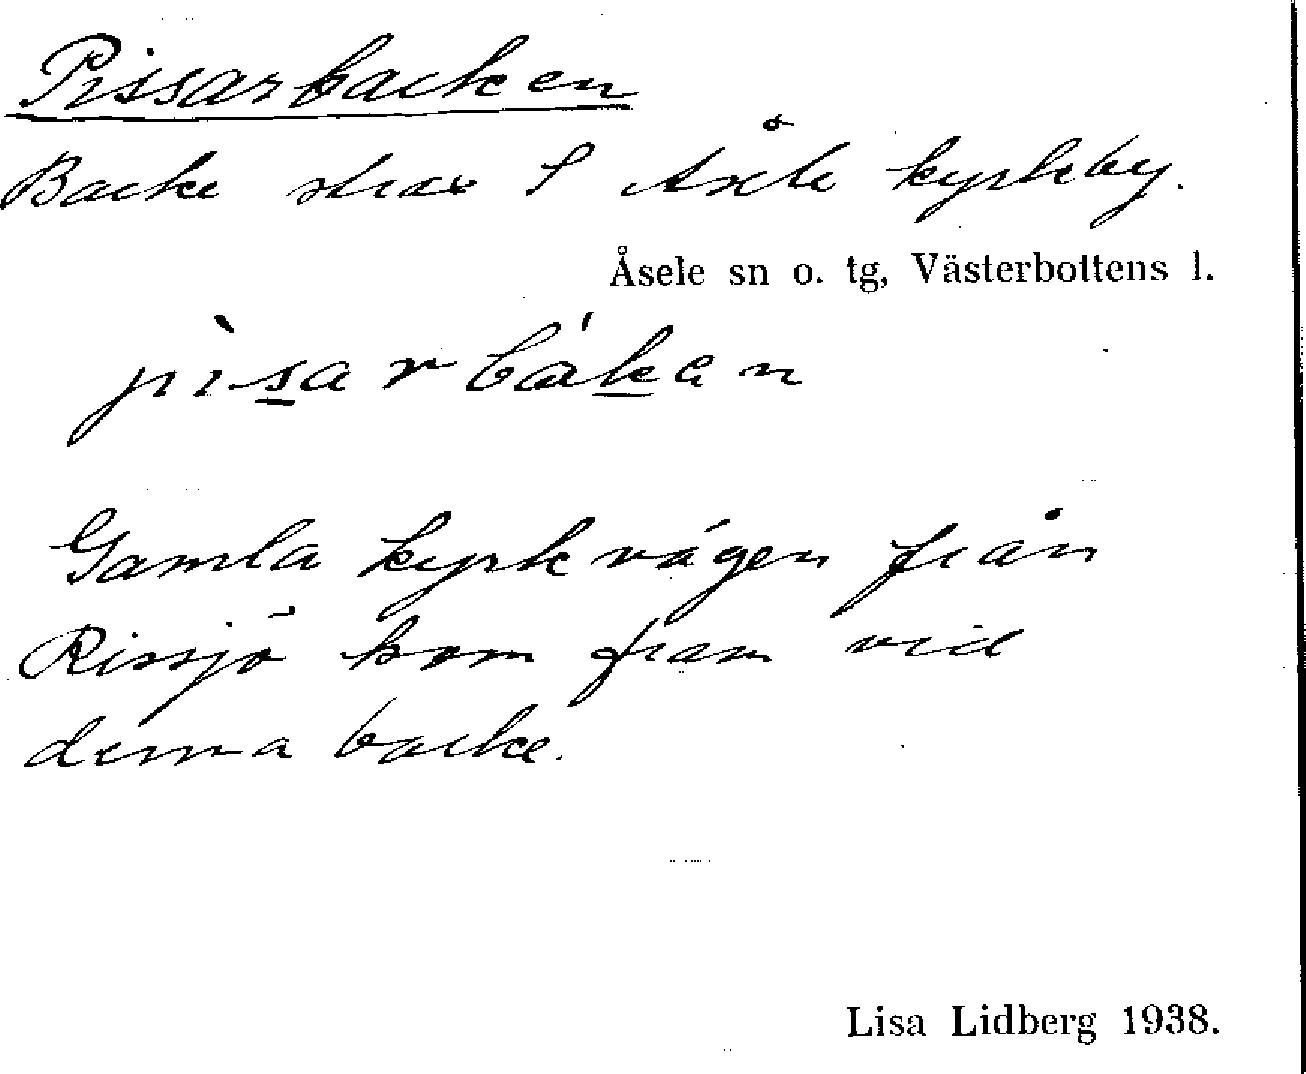 Pissarbacken
Backe strax S Åsele kyrkby.
Åsele sn o. tg, Västerbottens l.
pìsarbákan
Gamla kyrkvägen från
Rissjö kom fram vid
denna backe.
Lisa Lidberg 1938.